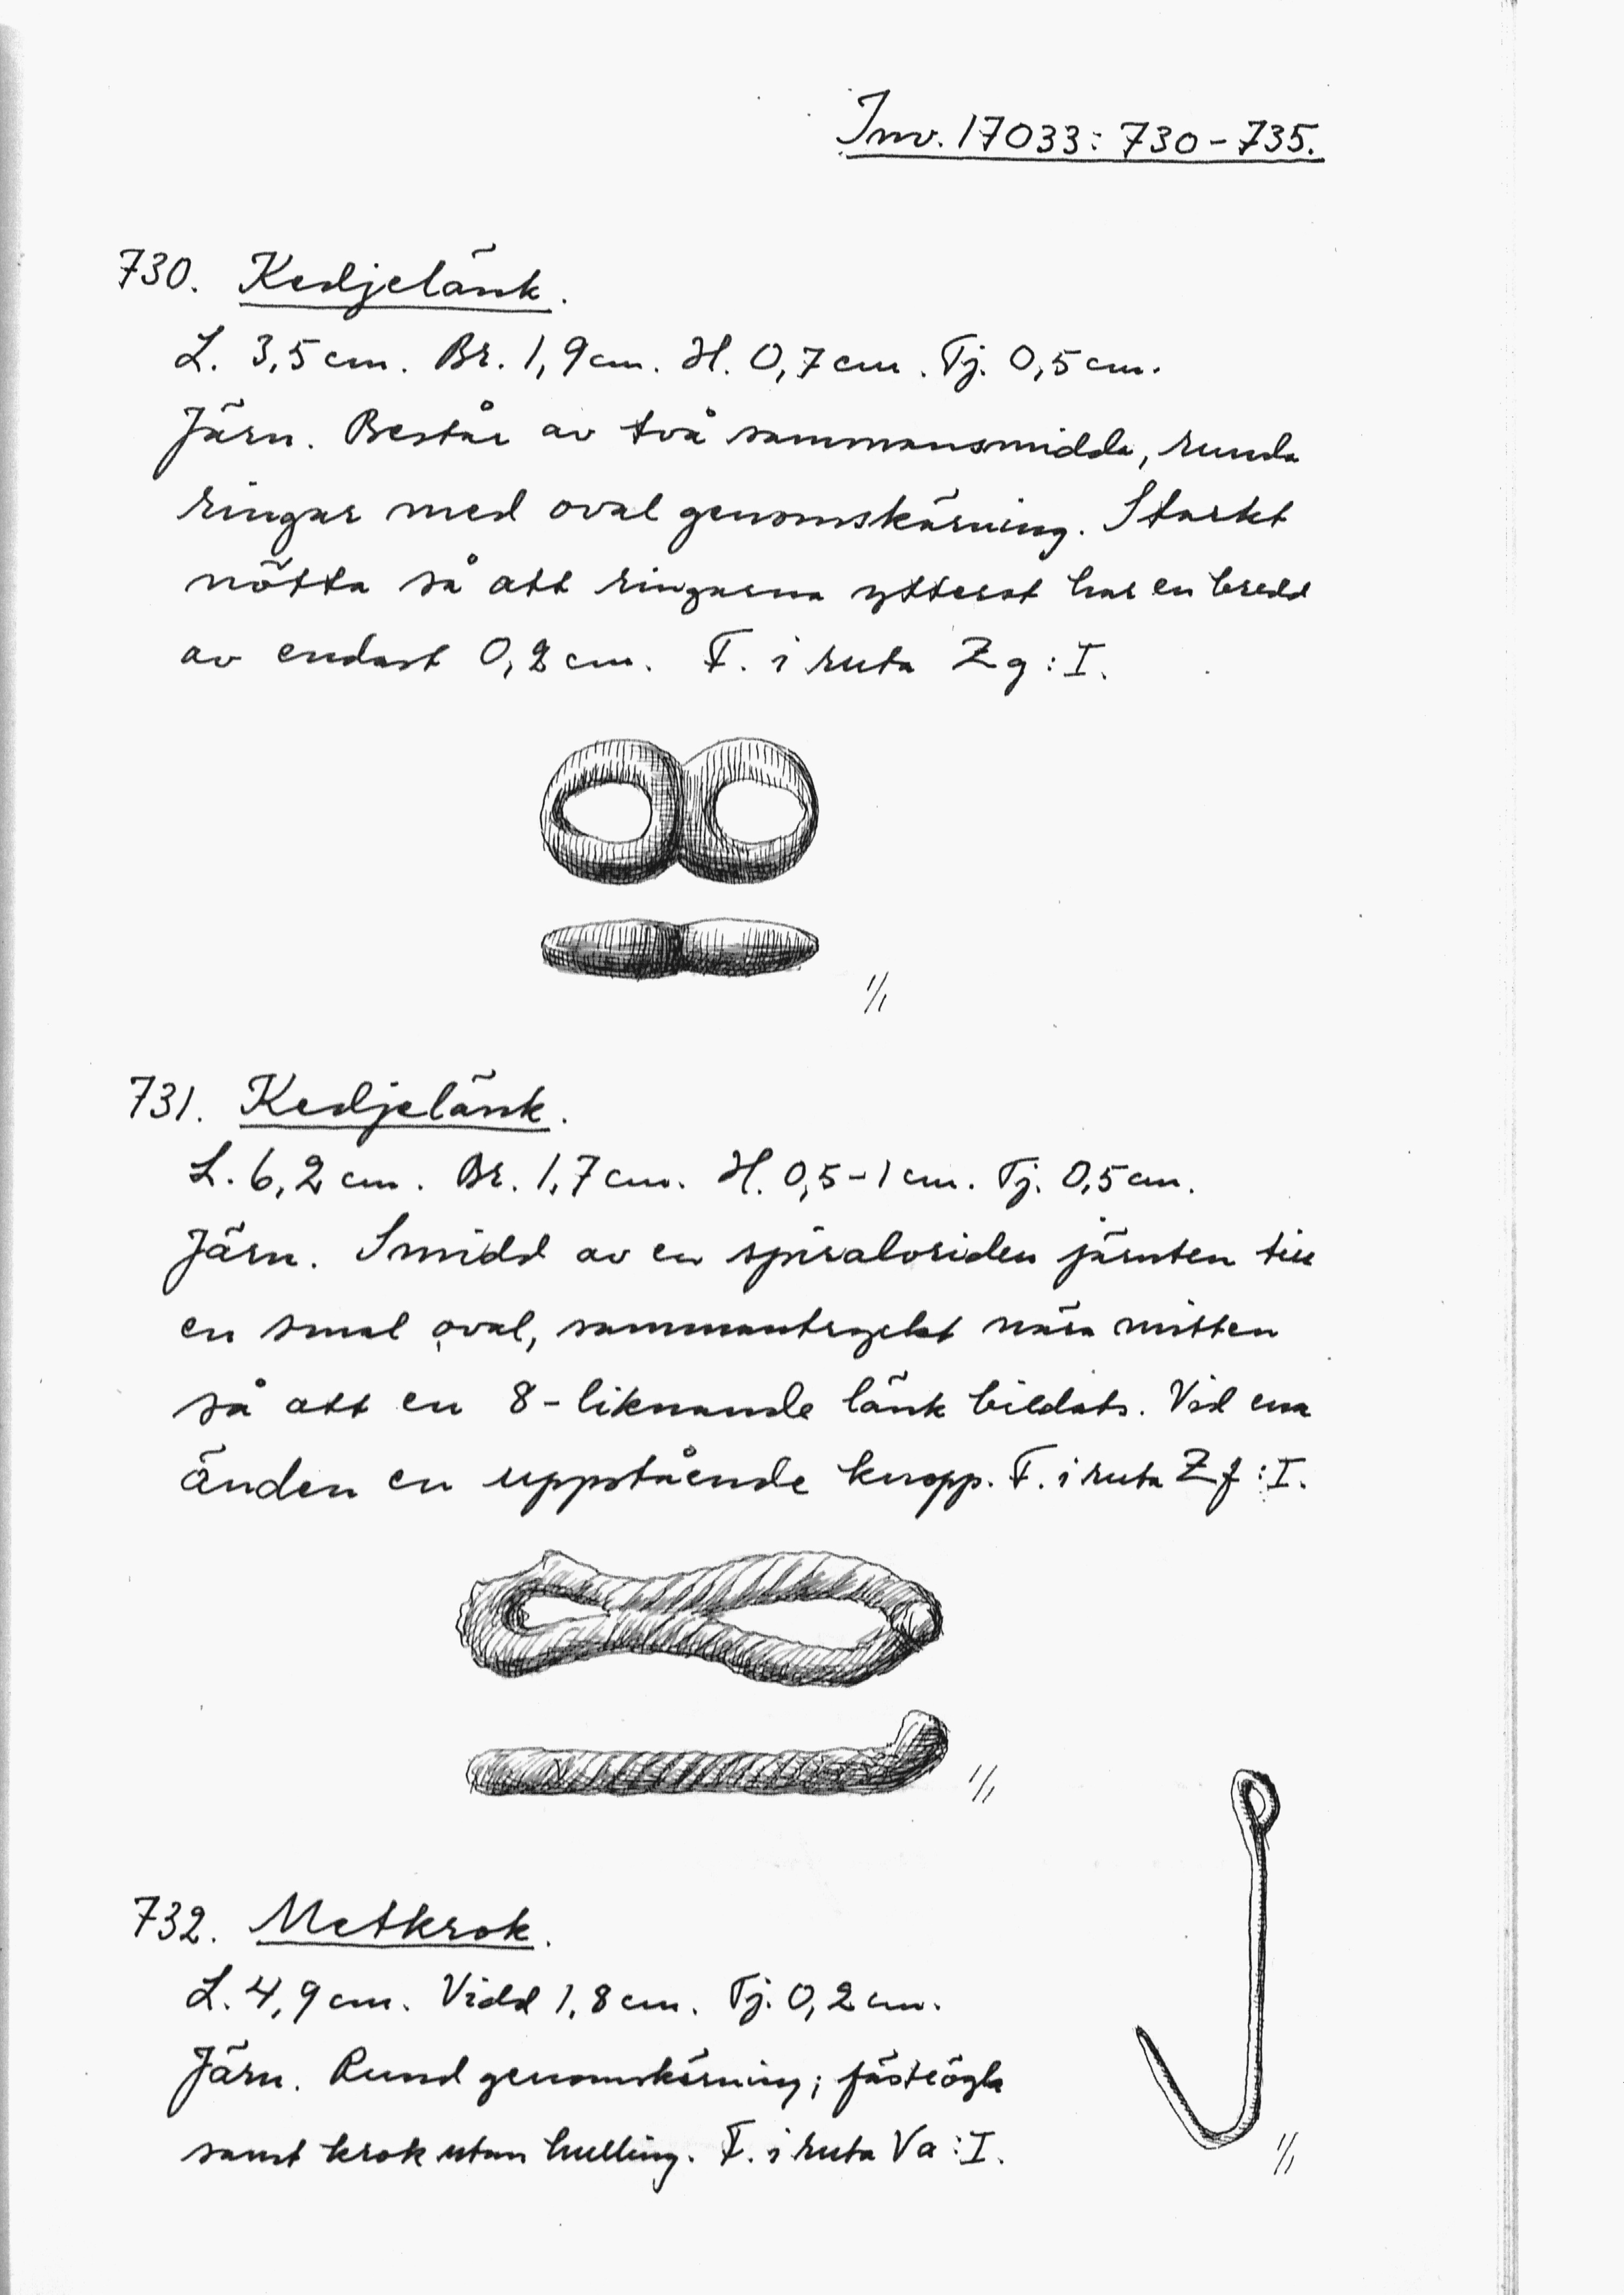 Inv. 17033: 730-735.
730. Kedjelänk.
L. 3,5 cm. Br. 1,9 cm. H. 0,7 cm. Tj. 0,5 cm.
Järn. Består av två sammansmidda, runda
ringar med oval genomskärning. Starkt
nötta så att ringarna ytterst har en bredd
av endast 0,2 cm. F. i ruta Zg:I.
1/1
731. Kedjelänk.
L. 6,2 cm. Br. 1,7 cm. H. 0,5-1 cm. Tj. 0,5 cm.
Järn. Smidd av en spiralvriden järnten till
en smal oval, sammantryckt nära mitten
så att en 8-liknande länk bildats. Vid ena
änden en uppstående knopp. F. i ruta Zf:I.
1/1
732. Metkrok.
L. 4,9 cm. Vidd 1,8 cm. Tj. 0,2 cm.
Järn. Rund genomskärning; fästeögla
samt krok utan hulling. F. i ruta Va:I.
1/1